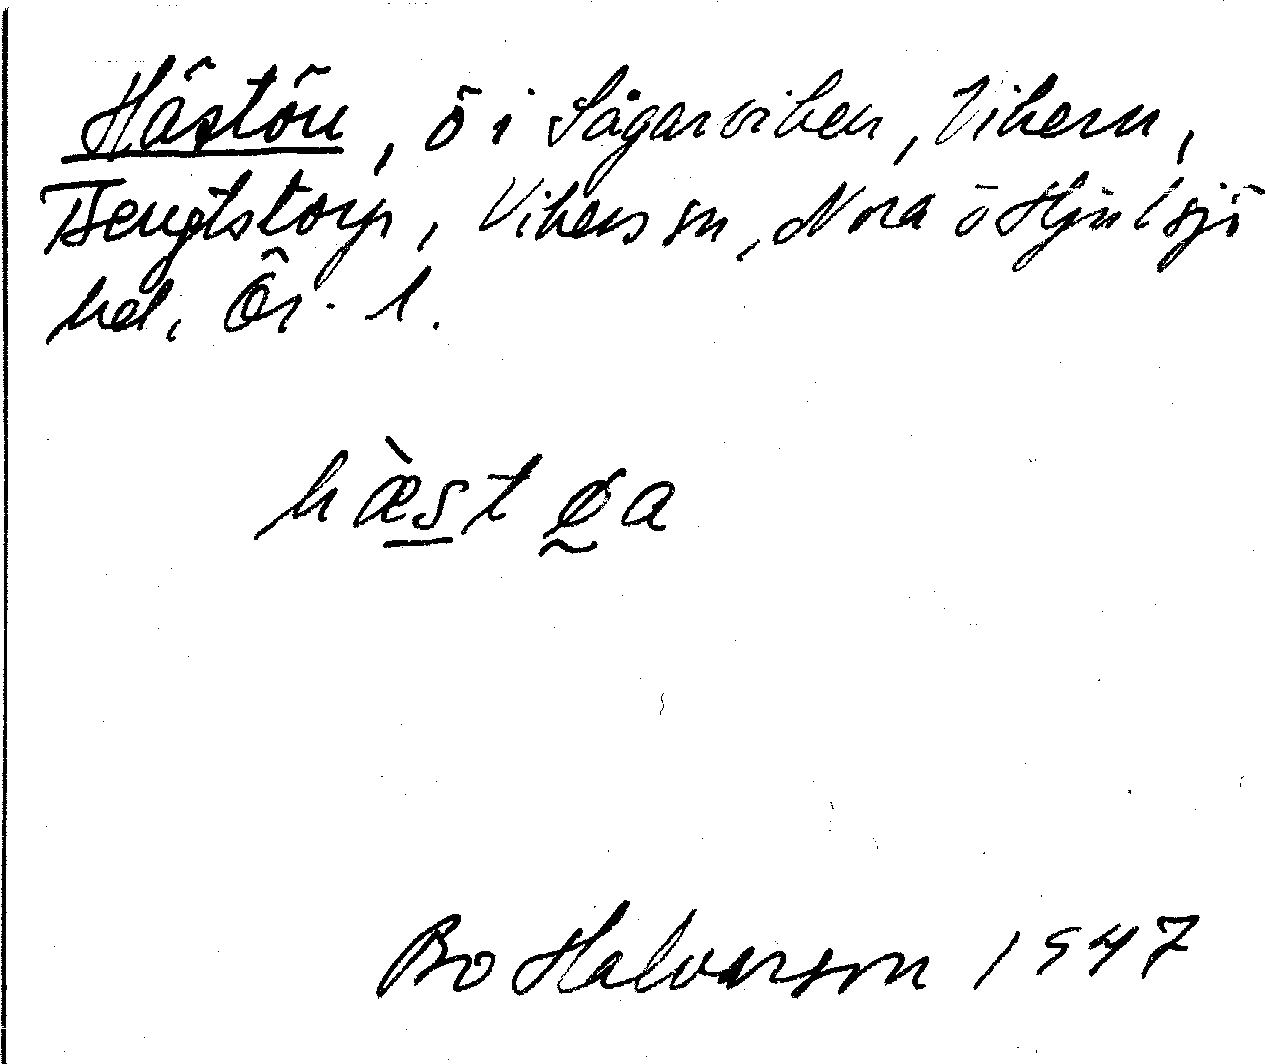 Hästön, ö i Sågarviken, Vikern,
Bengtstorp, Vikers sn, Nora o Hjulsjö
hd, Ör. l.
hæst øa
Bo Halvarson 1947